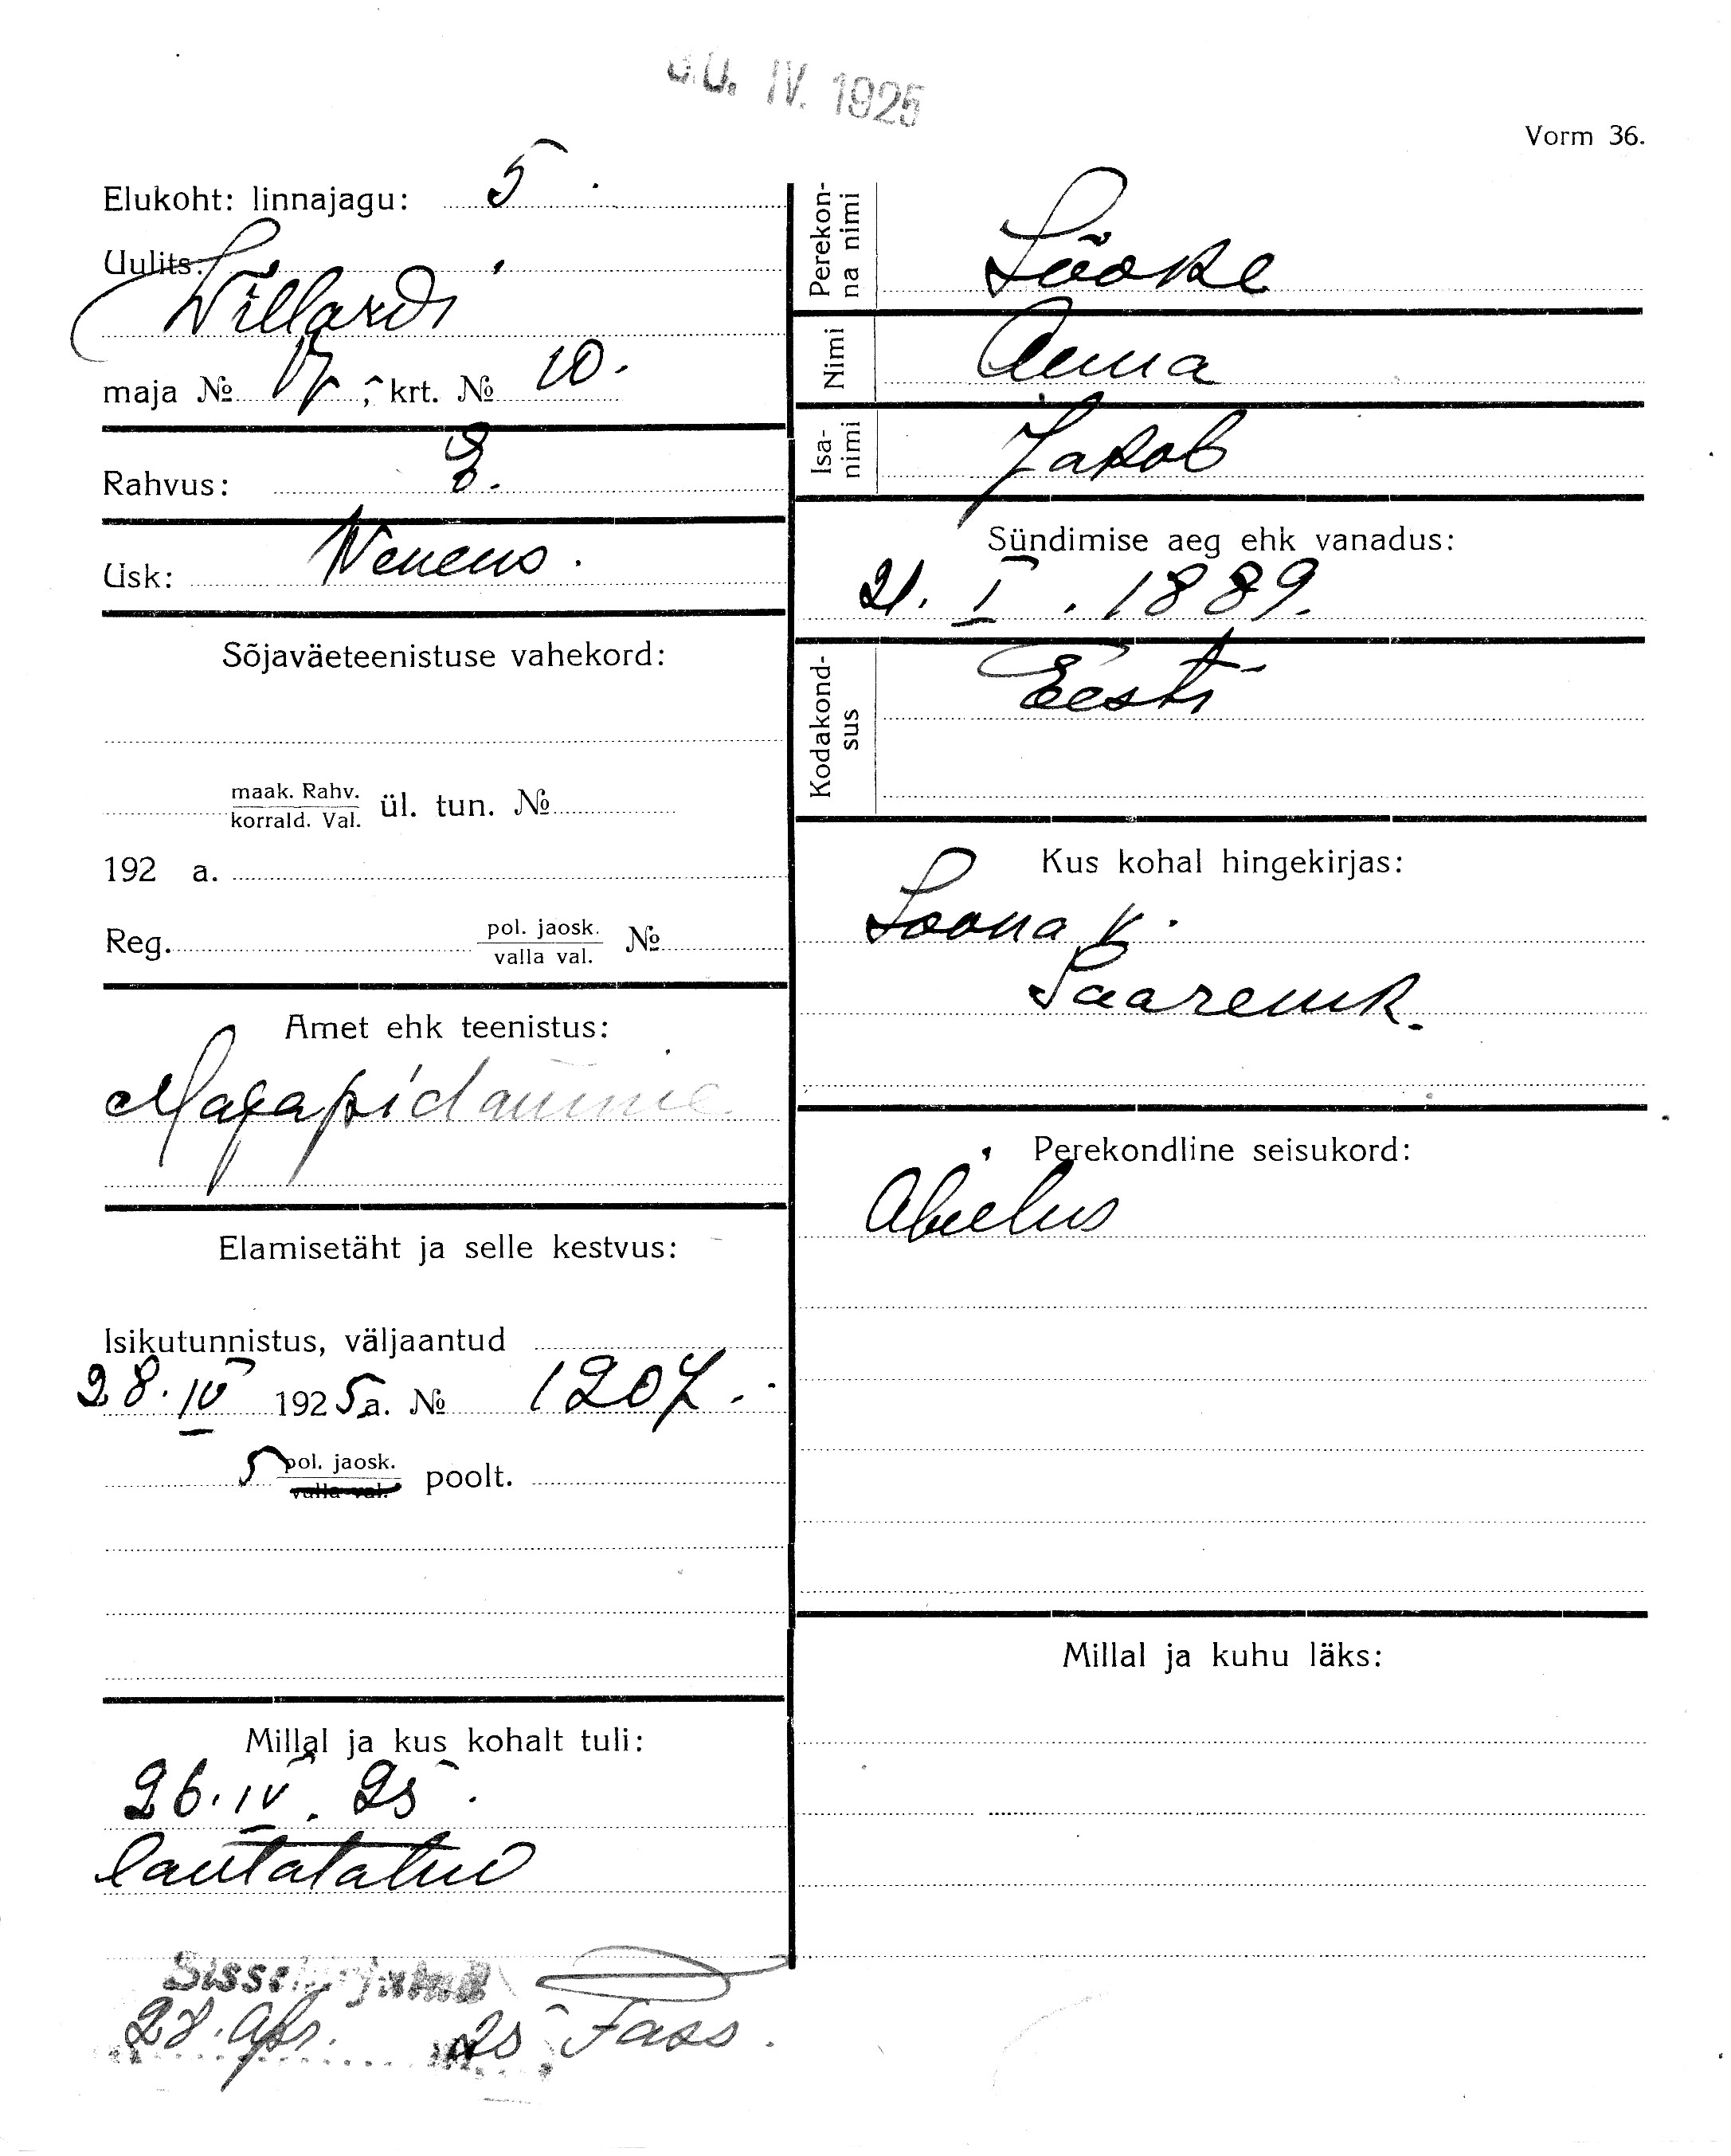 30. IV. 1925
Vorm 36.
Elukoht: linnajagu: 5.
Uulits:
Willardi
maja № 17, krt. № 10.
Rahvus: E.
Usk: Weneus.
Sõjaväeteenistuse vahekord:
maak. Rahv.
korrald. Val. ül. tun. №
192 a.
Reg. pol. jaosk.
valla val. №
Amet ehk teenistus:
Majapidamine
Elamisetäht ja selle kestvus:
Isikutunnistus, väljaantud
28. IV 1925 a. № 1207.
5 pol. jaosk.
valla val. poolt.
Millal ja kus kohalt tuli:
26. IV. 25.
lautatatud
Sissekirjutatud
28. Apr. 25 Fass.
Perekon-
na nimi Lõoke
Nimi Anna
Isa-
nimi Jakob
Sündimise aeg ehk vanadus:
21. I. 1889.
Kodakond-
sus Eesti
Kus kohal hingekirjas:
Loona v.
Saaremk.
Perekondline seisukord:
Abielus
Millal ja kuhu läks: